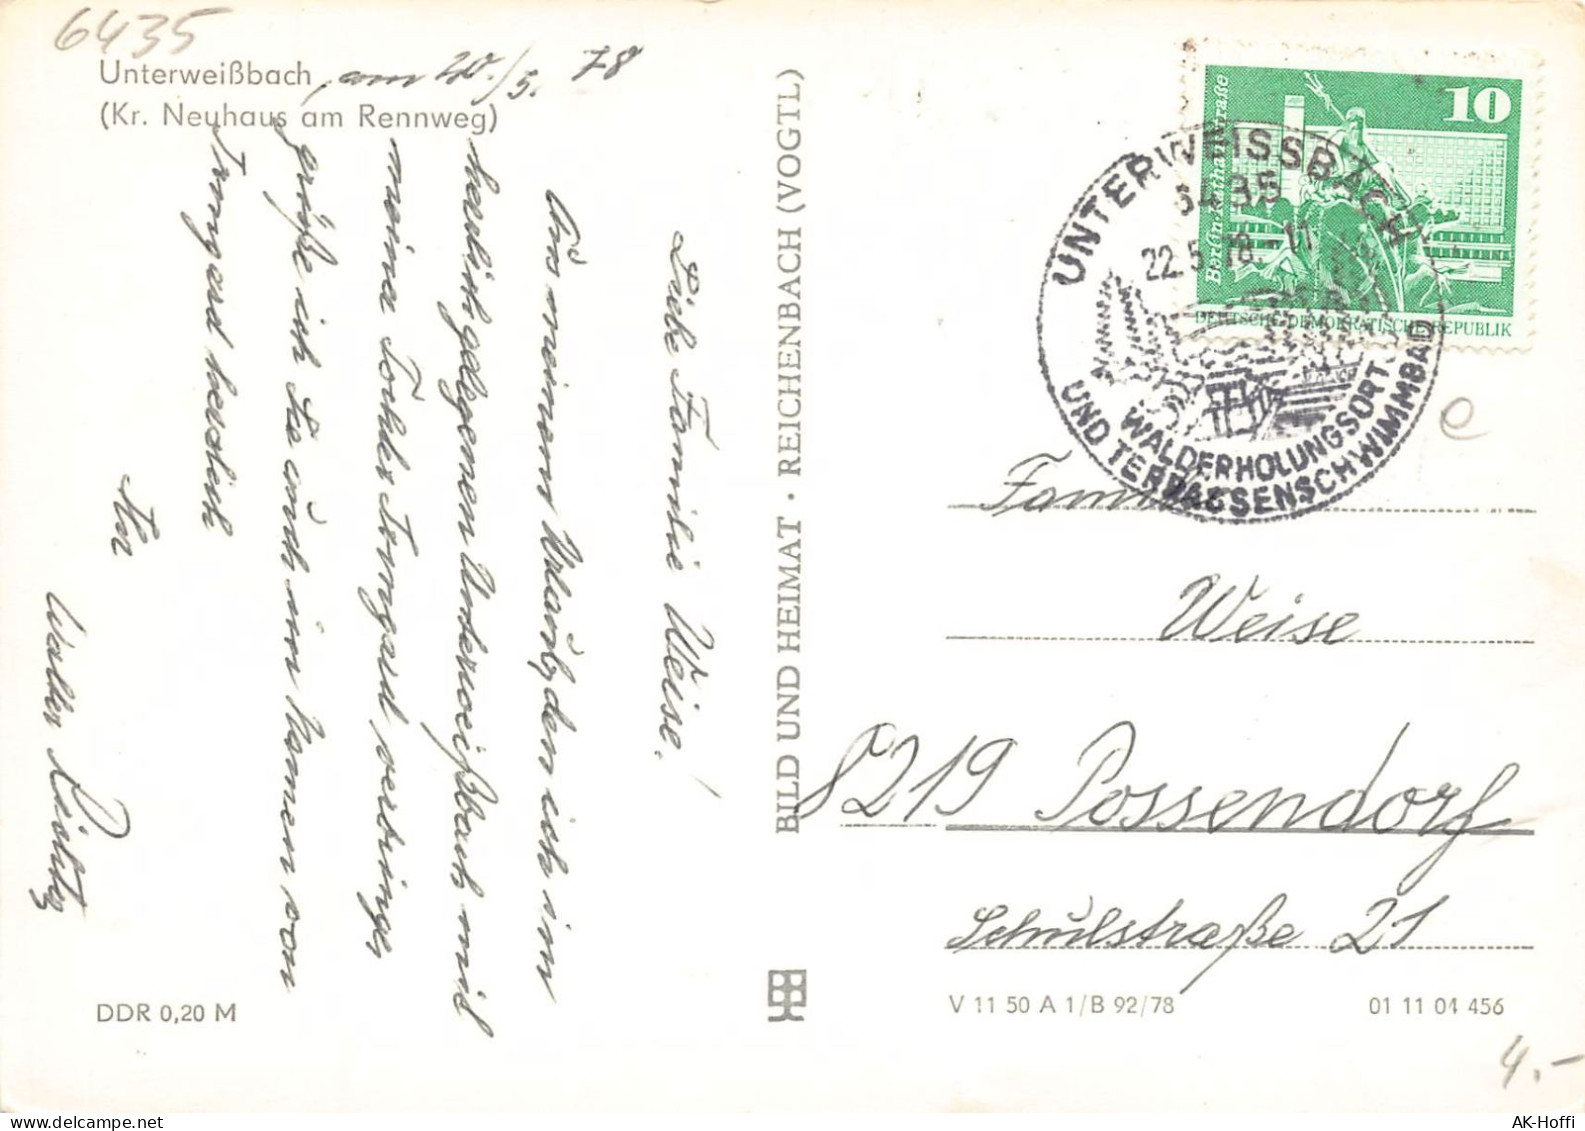 6435
Unterweißbach, am 20./5. 78
(Kr. Neuhaus am Rennweg)
Liebe Familie Weise!
Aus meinem Urlaub, den ich im
herrlich gelegenen Unterweißbach mit
meina Tochter Irmgard verbringe,
grüße ich Sie auch im Namen von
Irmgard herzlich
Ihr
Walter
DDR 0,20 M
BILD UND HEIMAT · REICHENBACH (VOGTL)
10
Berlin-Rathausstraße
DEUTSCHE DEMOKRATISCHE REPUBLIK
UNTERWEISSBACH
6435
22.5.78.-11
WALDERHOLUNGSORT
UND TERRASSENSCHWIMMBAD
e
Familie
Weise
8219 Possendorf
Schulstraße 21
V 11 50 A 1/B 92/78
01 11 04 456
4.-
AK-Hoffi